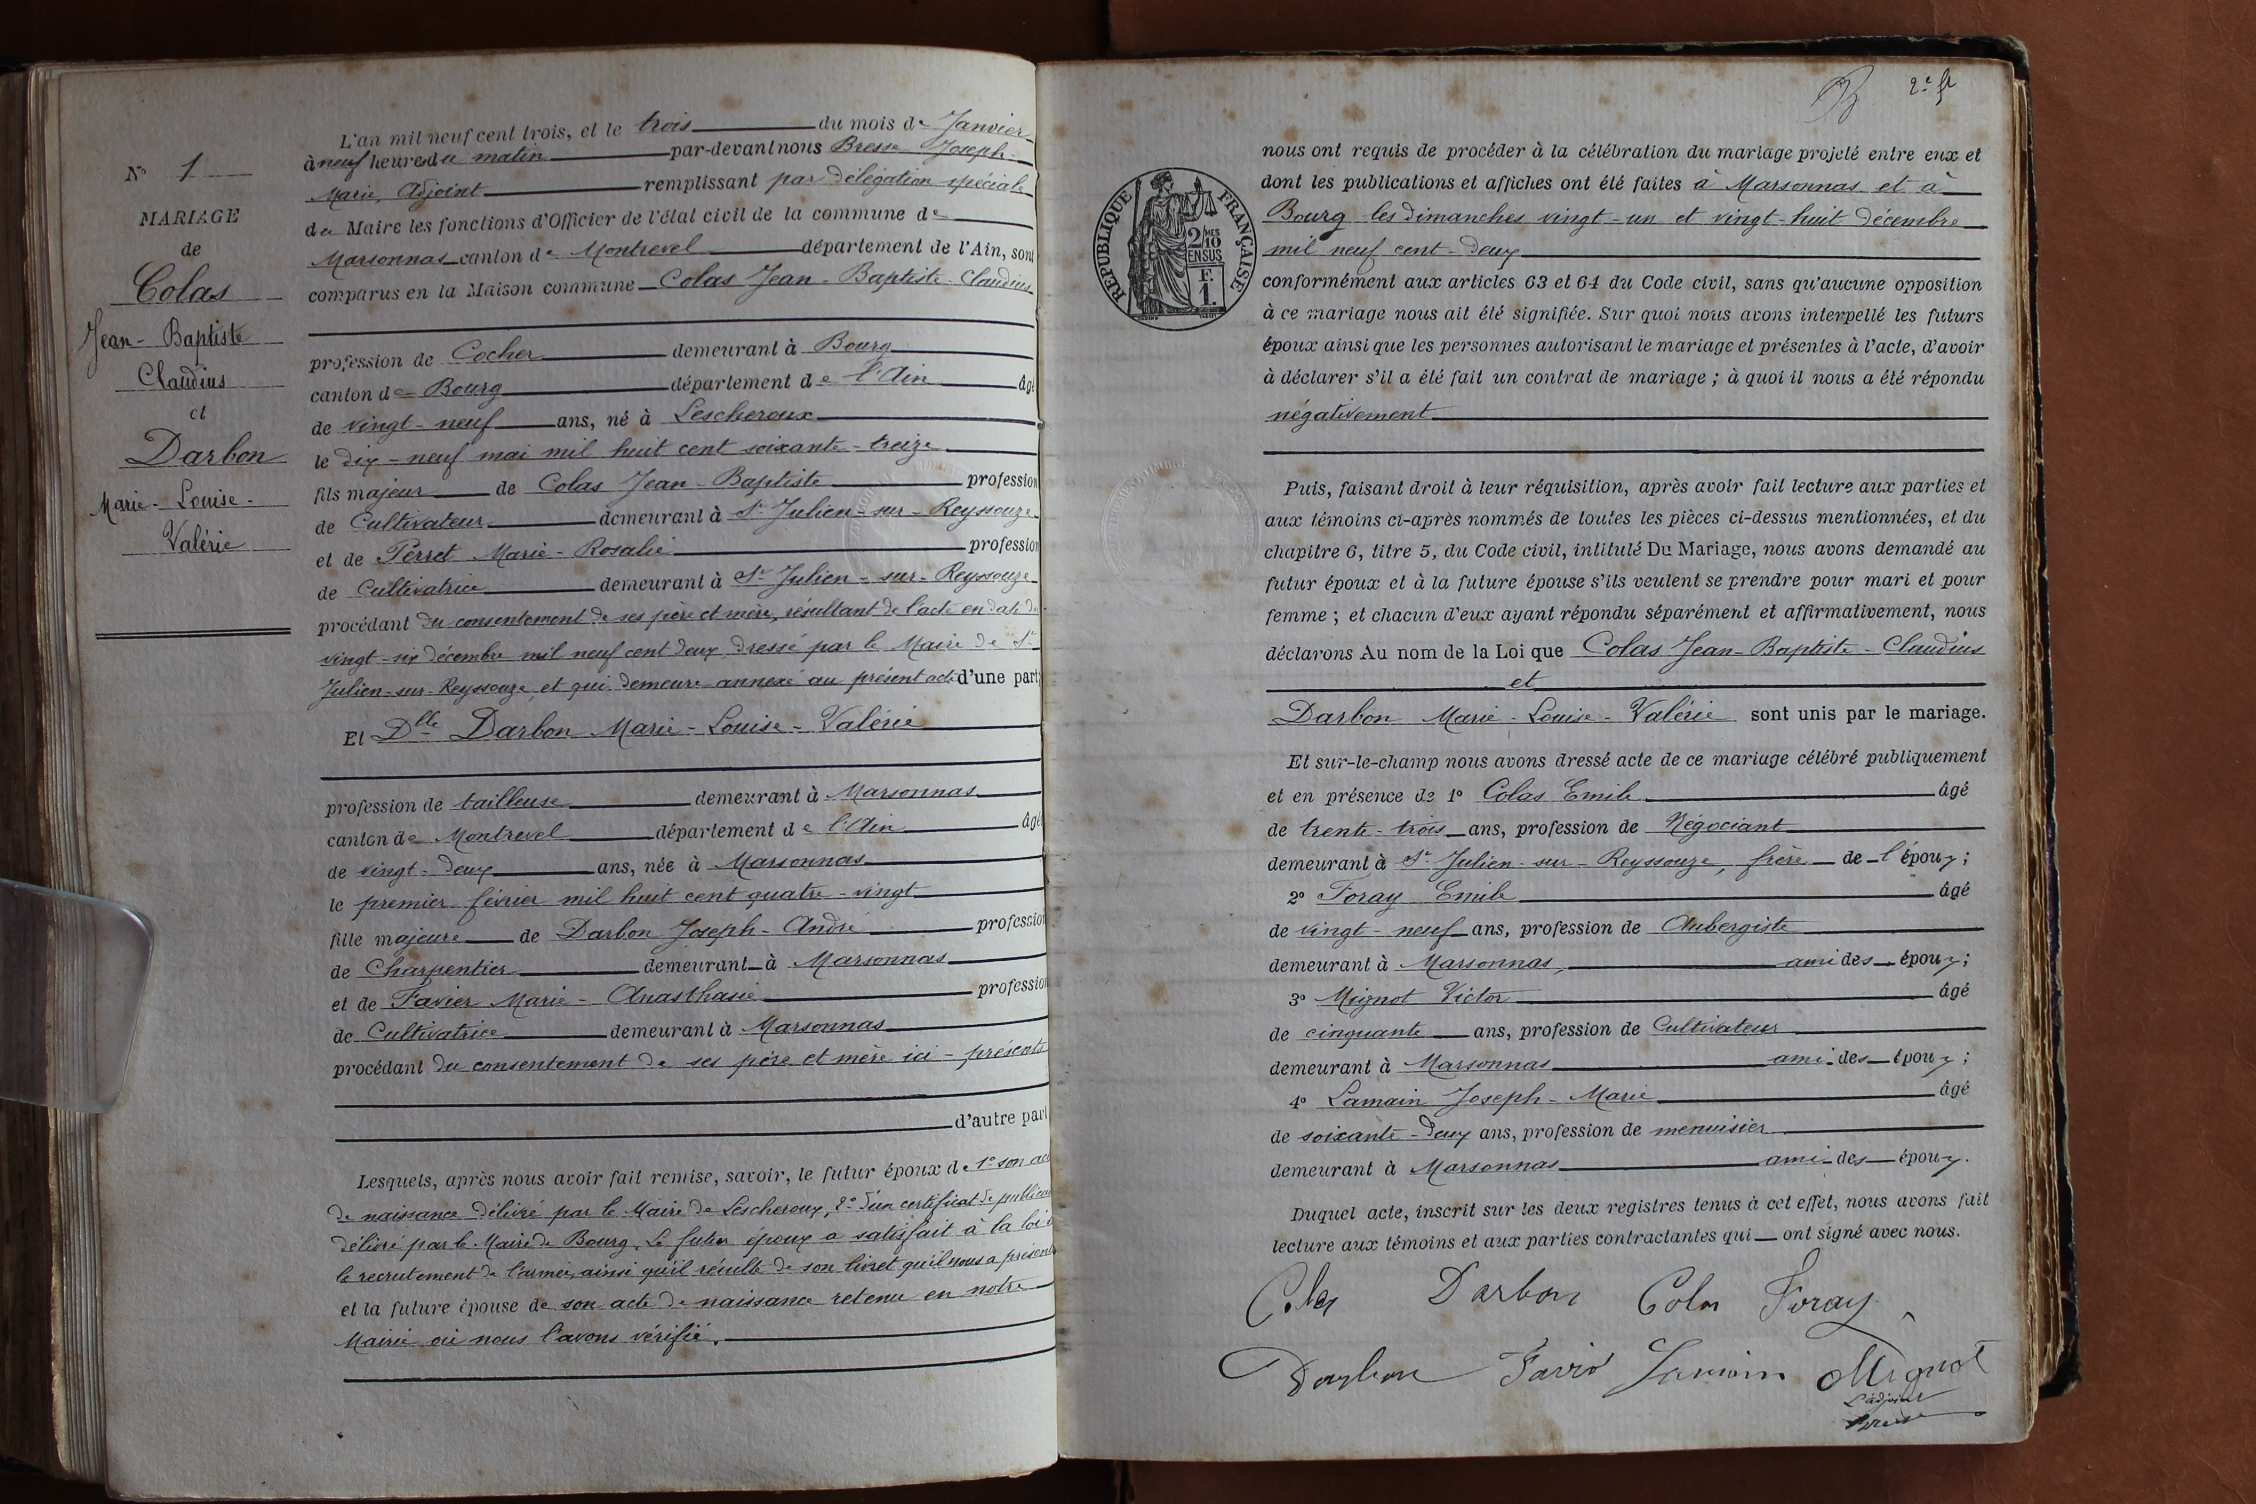 N° 1
MARIAGE
de
Colas
Jean-Baptiste
Claudius
et
Darbon
Marie-Louise-
Valérie
L'an mil neuf cent trois, et le trois du mois de Janvier
à neuf heures du matin par-devant nous Bresse Joseph-
Marie, Adjoint remplissant par délégation spéciale
du Maire les fonctions d'Officier de l'état civil de la commune de
Marsonnas canton de Montrevel département de l'Ain, sont
comparus en la Maison commune Colas Jean-Baptiste-Claudius
profession de Cocher demeurant à Bourg
canton de Bourg département de l'Ain âgé
de vingt-neuf ans, né à Lescheroux
le dix-neuf mai mil huit cent soixante-treize
fils majeur de Colas Jean-Baptiste profession
de Cultivateur demeurant à St Julien-sur-Reyssouze
et de Perret Marie-Rosalie profession
de Cultivatrice demeurant à St Julien-sur-Reyssouze
procédant du consentement de ses père et mère, résultant de l'acte en date du
vingt-six décembre mil neuf cent deux dressé par le Maire de St
Julien-sur-Reyssouze, et qui demeure annexé au présent acte d'une part;
Et Dlle Darbon Marie-Louise-Valérie
profession de tailleuse demeurant à Marsonnas
canton de Montrevel département de l'Ain âgée
de vingt-deux ans, née à Marsonnas
le premier février mil huit cent quatre-vingt
fille majeure de Darbon Joseph-André profession
de Charpentier demeurant à Marsonnas
et de Favier Marie-Anasthasie profession
de Cultivatrice demeurant à Marsonnas
procédant du consentement de ses père et mère ici-présents
d'autre part
Lesquels, après nous avoir fait remise, savoir, le futur époux de 1° son acte
de naissance délivré par le Maire de Lescheroux, 2° d'un certificat de publication
délivré par le Maire de Bourg. Le futur époux a satisfait à la loi
le recrutement de l'armée, ainsi qu'il résulte de son livret qu'il nous a présenté
et la future épouse de son acte de naissance retenu en notre
Mairie où nous l'avons vérifié.
2e ft
RÉPUBLIQUE FRANÇAISE
2/10 MES
EN SUS
F.
1.
nous ont requis de procéder à la célébration du mariage projeté entre eux et
dont les publications et affiches ont été faites à Marsonnas et à
Bourg les dimanches vingt-un et vingt-huit décembre
mil neuf cent-deux
conformément aux articles 63 et 64 du Code civil, sans qu'aucune opposition
à ce mariage nous ait été signifiée. Sur quoi nous avons interpellé les futurs
époux ainsi que les personnes autorisant le mariage et présentes à l'acte, d'avoir
à déclarer s'il a été fait un contrat de mariage ; à quoi il nous a été répondu
négativement
Puis, faisant droit à leur réquisition, après avoir fait lecture aux parties et
aux témoins ci-après nommés de toutes les pièces ci-dessus mentionnées, et du
chapitre 6, titre 5, du Code civil, intitulé Du Mariage, nous avons demandé au
futur époux et à la future épouse s'ils veulent se prendre pour mari et pour
femme ; et chacun d'eux ayant répondu séparément et affirmativement, nous
déclarons Au nom de la Loi que Colas Jean-Baptiste-Claudius
et
Darbon Marie-Louise-Valérie sont unis par le mariage.
Et sur-le-champ nous avons dressé acte de ce mariage célébré publiquement
et en présence de 1° Colas Emile âgé
de trente-trois ans, profession de Négociant
demeurant à St Julien-sur-Reyssouze, frère de l'époux ;
2° Foray Emile âgé
de vingt-neuf ans, profession de Aubergiste
demeurant à Marsonnas, ami des époux ;
3° Mignot Victor âgé
de cinquante ans, profession de Cultivateur
demeurant à Marsonnas ami des époux ;
4° Lamain Joseph-Marie âgé
de soixante-deux ans, profession de menuisier
demeurant à Marsonnas ami des époux.
Duquel acte, inscrit sur les deux registres tenus à cet effet, nous avons fait
lecture aux témoins et aux parties contractantes qui ont signé avec nous.
Colas Darbon Colas Foray
Darbon Favié Lamain Mignot
L'adjoint
Bresse